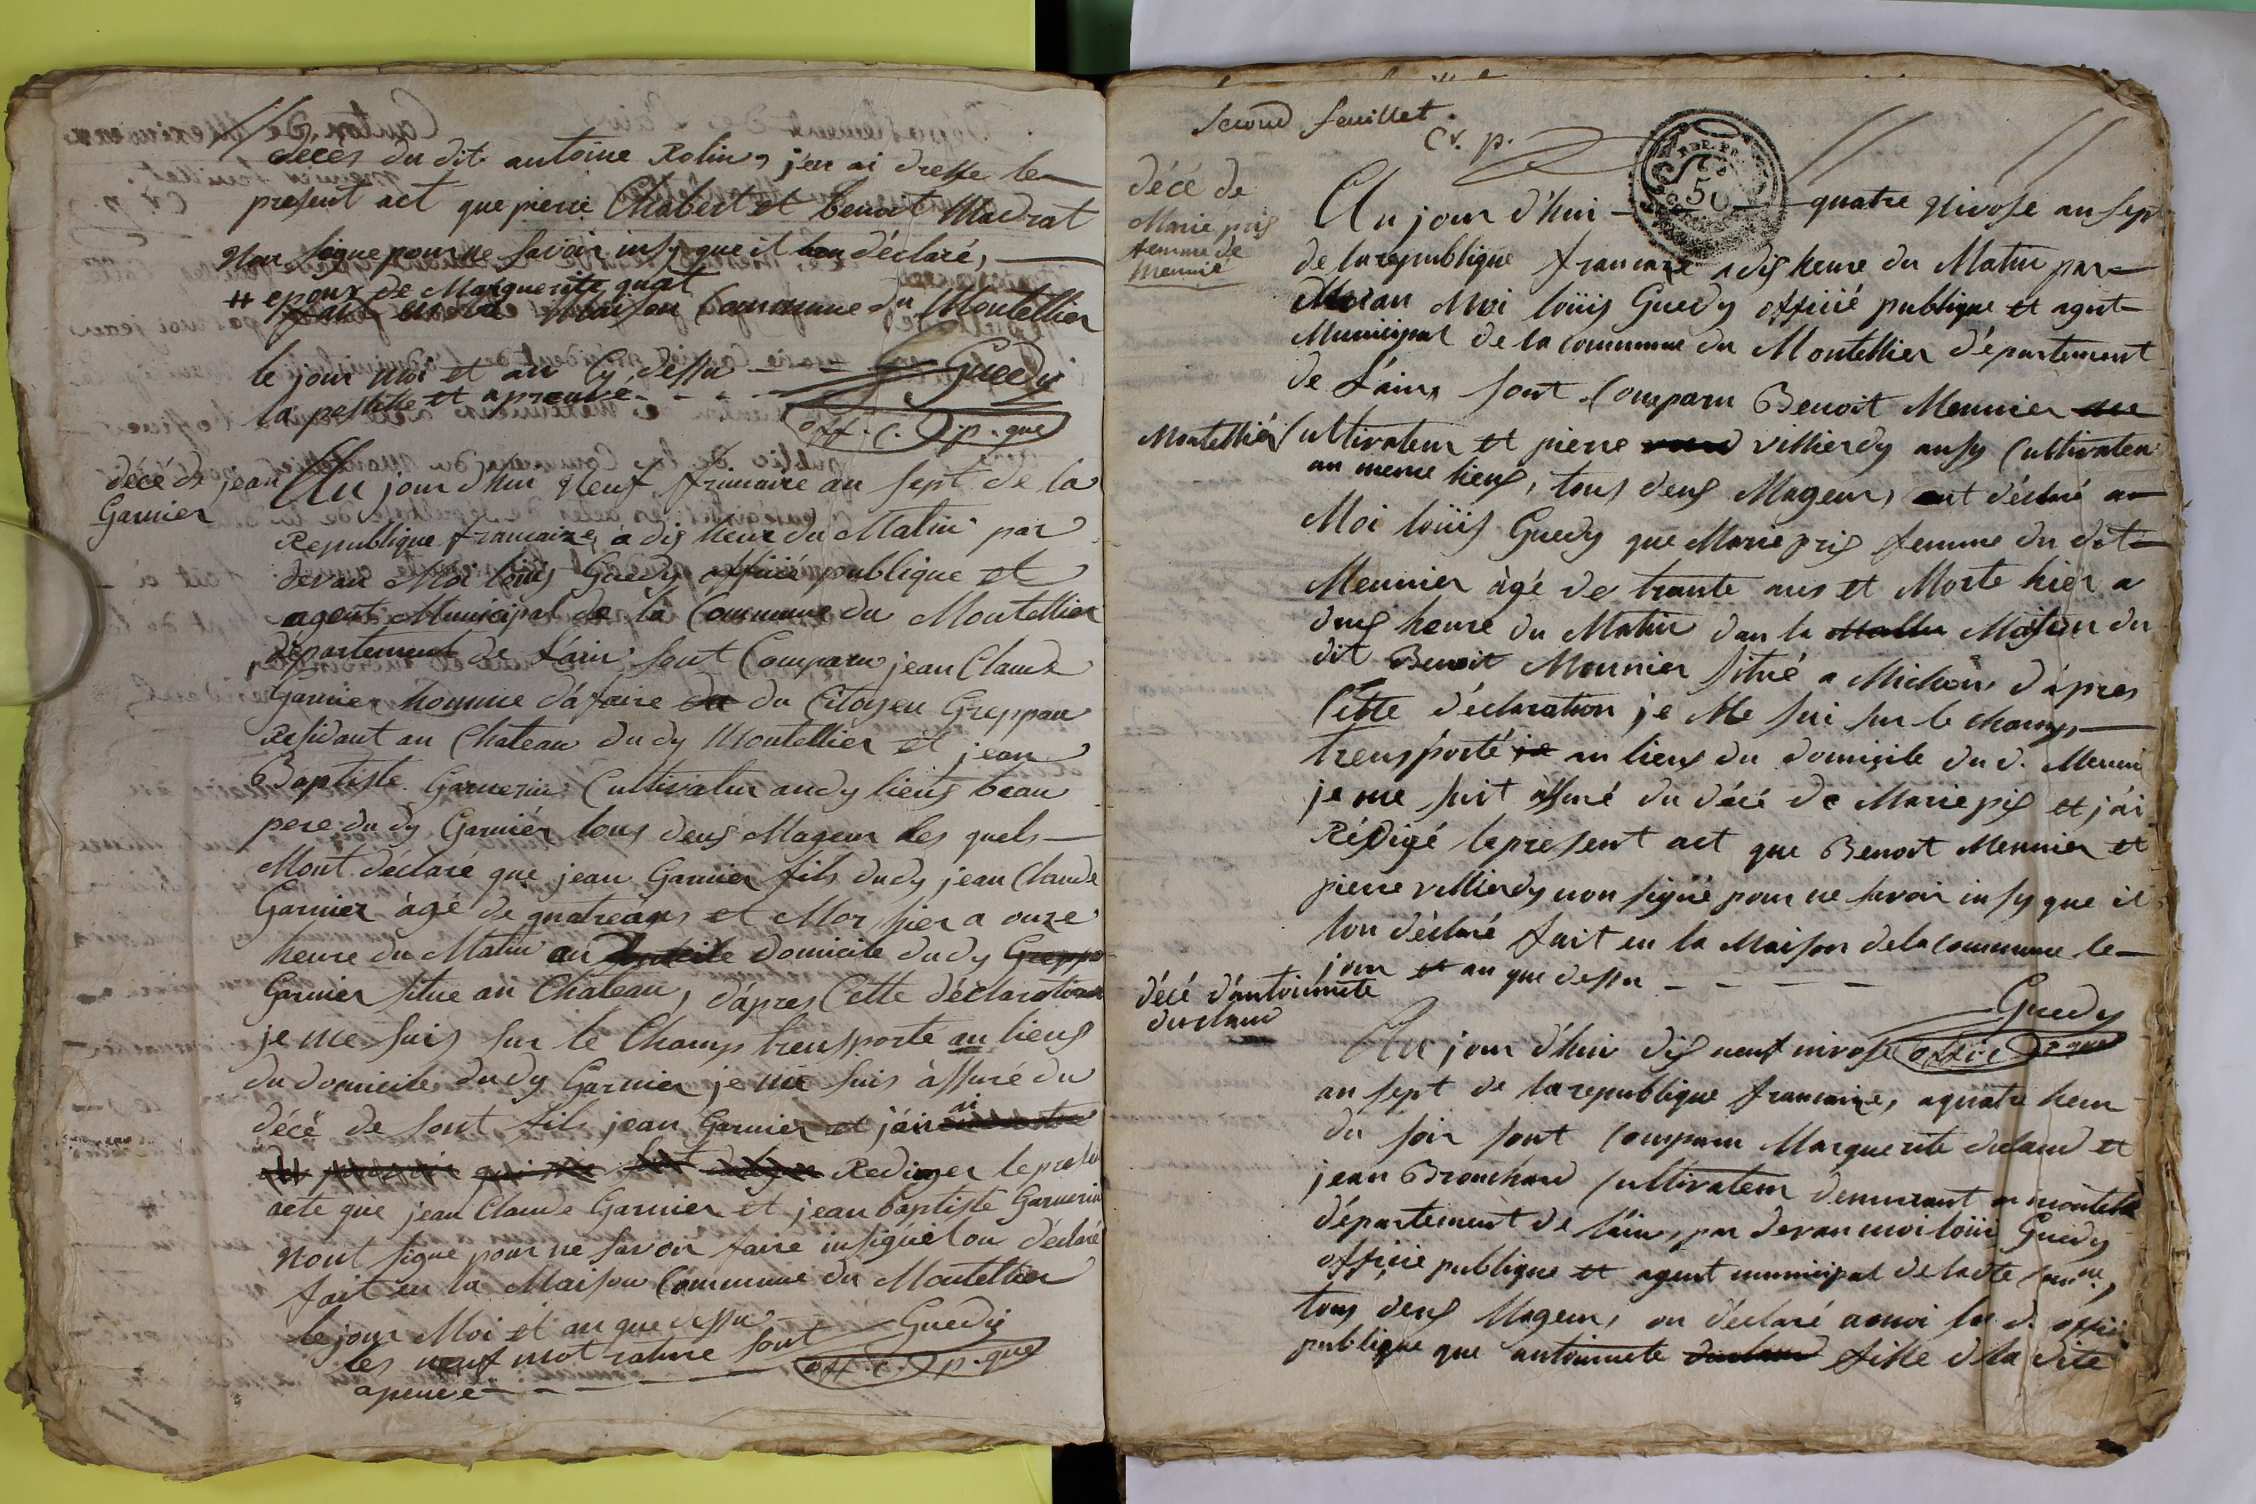 deces du dit antoine Rolin, j'en ai dresse le
present act que pierre Chabert et benoit Madrat
non signe pour ne savoir insy que il lon déclaré,
# epoux de Marguerite quat
fait en la Maison Commune du Montellier
le jour moi et an Cy dessu
Guedy
la postille et aprouvé
off. c. p. que
décé de jean
Garnier
Au jourdhui Neuf frimaire an sept de la
Republique francaize, à dix heure du Matin par
devan Moi loüis Guedy officié publique et
agent Municipal de la Commune du Montellier
département de Lain sont Comparu jean Claude
Garnier homme dáfaire du Citoyen Greppau
Résidant au Chateau dudy Montellier et jean
Baptiste Garnerin Cultivateur audy lieux beau
pere du dy Garnier tous deux Mageur les quels
Mont déclaré que jean Garnier fils dudy jean Claude
Garnier àgé de quatreans et Mor hier a onze
heure du Matin au domicile dudy Greppo
Garnier situe au Chateau, dápres Cette déclaration
je me suis sur le Champ trensporté au lieux
du domicile dudy Garnier je me suis àssuré du
décé de sont fils jean Garnier et j'ai
Rediger le present
acte que jean Claude Garnier et jean baptiste Garnerin
nont signe pour ne savoir faire insiquél on déclaré
fait en la Maison Commune du Montellier
le jour Moi et an que dessu
Guedy
les neuf mot rature sont
aprouvé
off. c. p. que
Second feuillet.
cv. p.
50
décé de
Marie pris
femme de
Meunié
Au jour d'hui quatre Nivose an sept
de la republique francaize a dix heure du Matin par
devan Moi loüis Guedy officié publique et agent
Municipal de la commune du Montellier département
de Láin, sont Comparu Benoit Meunier au
Montellié Cultivateur et pierre villierdy aussy Cultivateur
au meme lieux, tous deux Mageur, ont déclaré a
Moi loüis Guedy que Marie pris femme du dot
Meunier àgé de trante ans et Morte hier a
deux heure du Matin dan la Maison du
dit Benoit Meunier situé a Michon, dápres
Cette déclaration je Me sui sur le champ
trensporté au lieux du domicile du d. Meuni
je me suit àssuré du décé de Marie pis et j'ái
Rédigé le present act que Benoit Meunier et
pierre villierdy non signé pour ne savoir insy que il
lon déclaré fait en la Maison de la commune le
jour et an que dessu
Guedy
offi. c. p. que
décé dántoinnete
duclaud
Au jour d'hui dix neuf nivose
an sept de la republique francaize, a quatre heur
du soir sont Comparu Marguerite duclaud et
jean Brouchaud Cultivateur demeurant au montellié
département de láin, par devan moi loüis Guedy
officié publique et agent municipal de ladte comne,
tous deux Mageur, on déclaré a moi le d. officié
publique que antoinnete duclaud fille d la dite